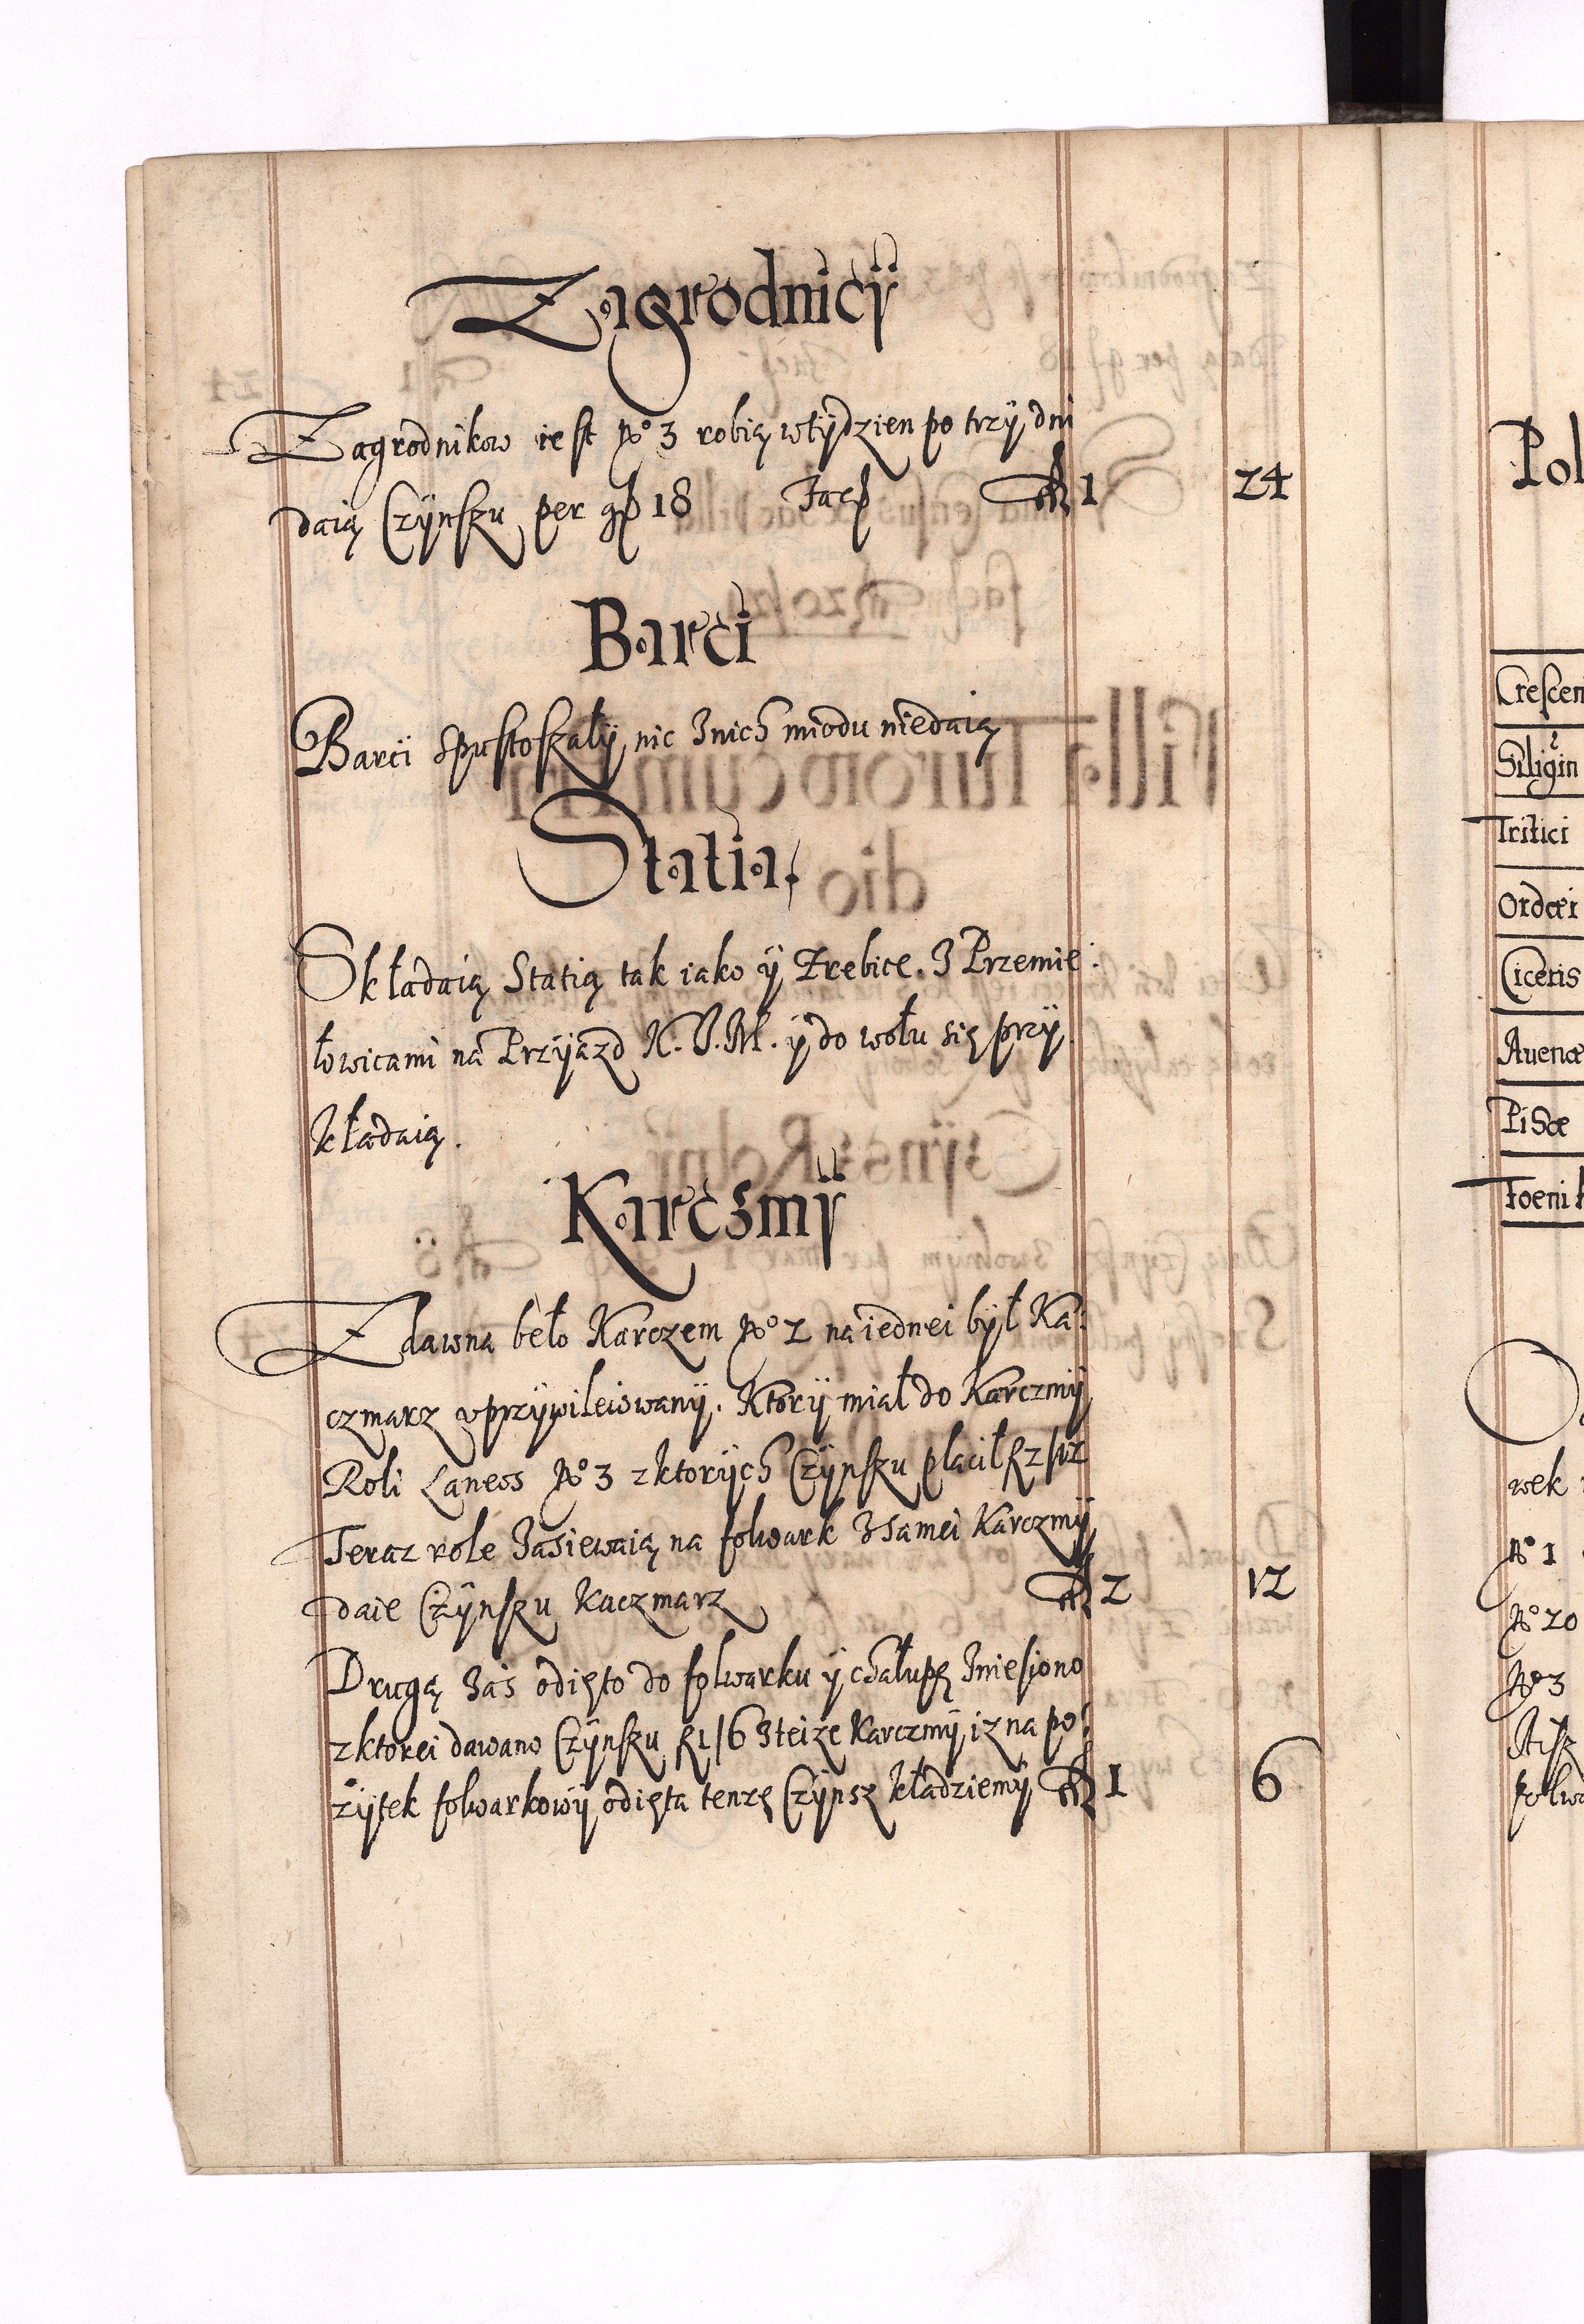 Zagrodnicÿ
Zagrodnikow iest No 3 robią wtÿdzien po trzÿ dni
daią Czÿnszu per gr 18 Facit fl 1 24
Barci
Barci spustoszałÿ, nic z nich miodu niedaią
Statia
Składaią Statią tak iako ÿ Trebice. Z Przemie:
łowicami na Przÿazd K. J. M. ÿ do wołu się przÿ
kładaią.
Karczmÿ
Zdawna beło Karczem No 2 na iednei bÿł Ka:
czmarz uprzÿwileiowanÿ. Ktorÿ miał do Karczmÿ
Roli Laneos No 3 z ktorÿch Czÿnszu płacił fl 2/12
Teraz role Zasiewaią na folwark Z samei Karczmÿ
daie Czÿnszu Kaczmarz fl 2 12
Drugą Zas odięto do folwarku ÿ chałupę Zniesiono
z ktorei dawano Czÿnszu fl 1/6 Z teize Karczmÿ, iz na po:
zÿtek folwarkowÿ odięta tenze Czÿnsz kładziemÿ fl 1 6
Pol
Crescen
Siligin
Tritici
Ordæi
Ciceris
Auenæ
Pisæ
Foeni
wek
No 1
No 20
No 3
folwa